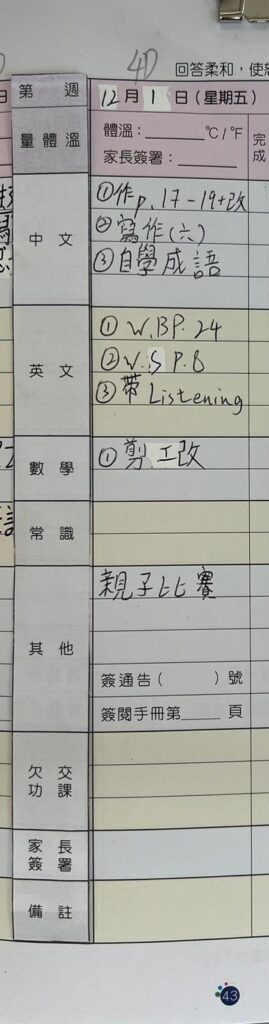 4D
回答柔和，使
第 週
12月1日(星期五)
量體溫
體溫：______℃/℉
家長簽署：
完成
中文
①作p.17-19+改
②寫作(六)
③自學成語
英文
① W.BP.24
②W.S P.8
③帶Listening
數學
①剪.工改
常識
其他
親子比賽
簽通告( )號
簽閱手冊第____頁
欠交功課
家長簽署
備註
43